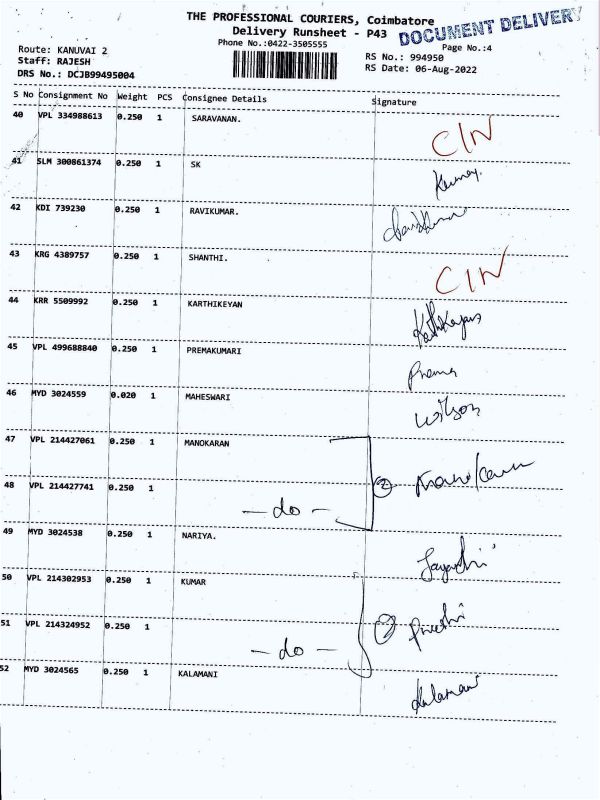 THE PROFESSIONAL COURIERS, Coimbatore
Delivery Runsheet - P43
DOCUMENT DELIVERY
Phone No.:0422-3505555
Page No.:4
Route: KANUVAI 2
RS No.: 994950
Staff: RAJESH
RS Date: 06-Aug-2022
DRS No.: DCJB99495004
S No Consignment No Weight PCS Consignee Details Signature
40 VPL 334988613 0.250 1 SARAVANAN. CIN
41 SLM 300861374 0.250 1 SK Kumar.
42 KDI 739230 0.250 1 RAVIKUMAR.
43 KRG 4389757 0.250 1 SHANTHI. CIN
44 KRR 5509992 0.250 1 KARTHIKEYAN Karthikeyan
45 VPL 499688840 0.250 1 PREMAKUMARI Prema
46 MYD 3024559 0.020 1 MAHESWARI Wilson
47 VPL 214427061 0.250 1 MANOKARAN
48 VPL 214427741 0.250 1 - do - 2
49 MYD 3024538 0.250 1 NARIYA. Jayanthi
50 VPL 214302953 0.250 1 KUMAR
51 VPL 214324952 0.250 1 - do - 2
52 MYD 3024565 0.250 1 KALAMANI Kalamani